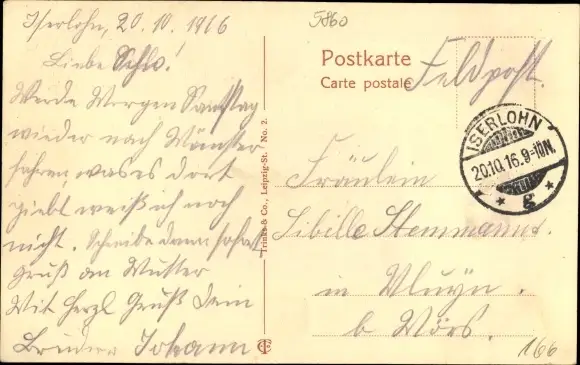 Iserlohn, 20.10.1916
Liebe
Werde Morgen Samstag
wieder nach Münster
fahren, was es dort
giebt weiß ich noch
nicht. Schreibe dann sofort
Gruß an Mutter
Mit Herzl Gruß Dein
Bruder Johann
Trinks & Co., Leipzig-St. No. 2.
5860
Postkarte
Carte postale
Feldpost.
ISERLOHN
20.10.16.9-10N.
* g *
Fräulein
Sibille Stemmanns.
in Vluyn.
b Mörs.
166